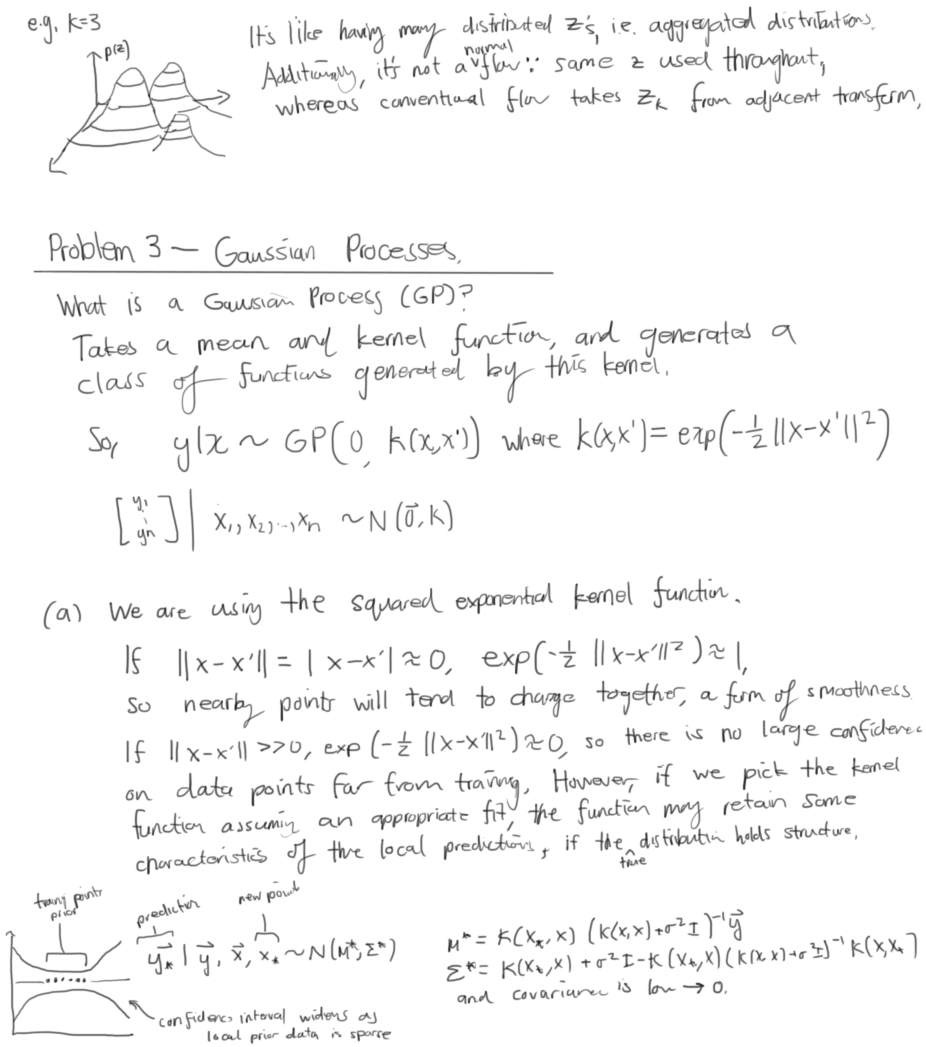 e.g. k=3
p(z)
It's like having many distributed z's, i.e. aggregated distributions.
Additionally, it's not a normal flow ∵ same z used throughout,
whereas conventional flow takes z_k from adjacent transform,
Problem 3 — Gaussian Processes.
What is a Gaussian Process (GP)?
Takes a mean and kernel function, and generates a
class of functions generated by this kernel.
So, y|x ~ GP(0, k(x,x')) where k(x,x') = exp(-½ ||x-x'||²)
[y₁ ⋮ yn] | x₁, x₂, ..., xn ~ N(0⃗, K)
(a) We are using the squared exponential kernel function.
If ||x-x'|| = |x-x'| ≈ 0, exp(-½ ||x-x'||²) ≈ 1,
so nearby points will tend to change together, a form of smoothness
If ||x-x'|| >> 0, exp(-½ ||x-x'||²) ≈ 0, so there is no large confidence
on data points far from training. However, if we pick the kernel
function assuming an appropriate fit, the function may retain some
characteristics of the local predictions, if the true distribution holds structure.
training points
prior
prediction
new point
y⃗* | y⃗, x⃗, x* ~ N(M*, Σ*)
M* = K(X*, X) (K(X,X)+σ²I)⁻¹y⃗
Σ* = K(X*, X) + σ²I - K(X*, X)(K(X,X)+σ²I)⁻¹ K(X,X*)
and covariance is low → 0.
confidence interval widens as
local prior data is sparse